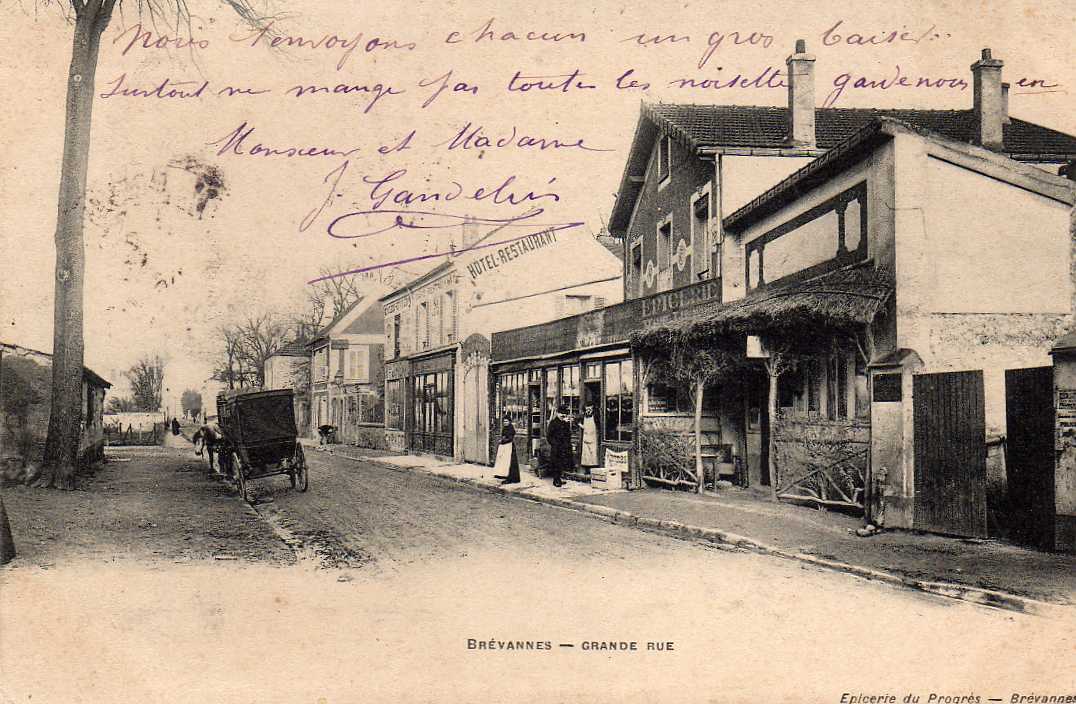 Nous t'envoyons chacun un gros baiser.
Surtout ne mange pas toutes les noisette garde nous en
Monsieur et Madame
J. Gandelus
HÔTEL-RESTAURANT
EPICERIE
BRÉVANNES — GRANDE RUE
Epicerie du Progrès — Brévannes